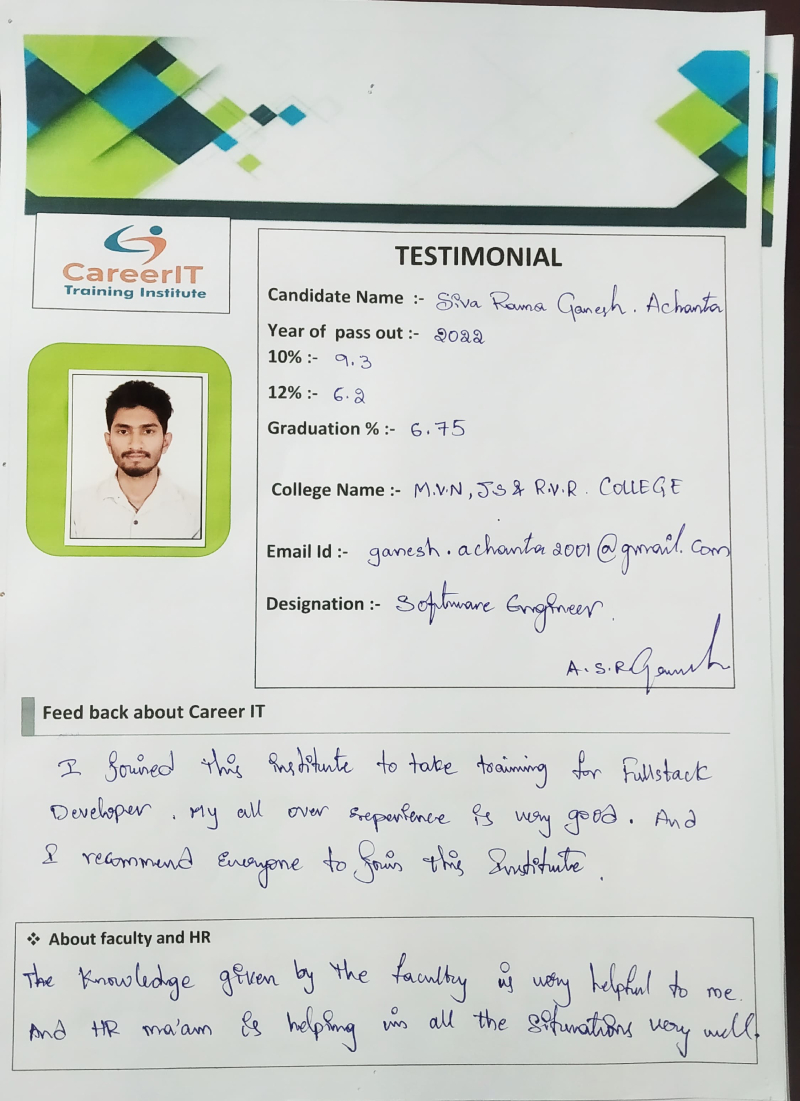 CareerIT
Training Institute
TESTIMONIAL
Candidate Name :- Siva Rama Ganesh. Achanta
Year of pass out :- 2022
10% :- 9.3
12% :- 6.2
Graduation % :- 6.75
College Name :- M.V.N, JS & R.V.R. COLLEGE
Email Id :- ganesh.achanta2001@gmail.com
Designation :- Software Engineer.
A.S.R Ganesh
Feed back about Career IT
I joined this institute to take training for Fullstack
Developer. My all over experience is very good. And
I recommend Everyone to join this Institute.
❖ About faculty and HR
The knowledge given by the faculty is very helpful to me.
And HR ma'am is helping in all the situnations very well.